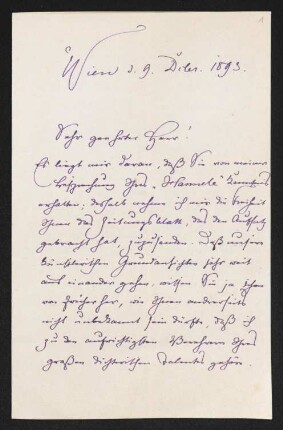 1
Wien d. 9. Dcbr. 1893.
Sehr geehrter Herr!
Es liegt mir daran, daß Sie von meiner
Besprechung Ihres "Hannele" Kenntnis
erhalten; deshalb nehme ich mir die Freiheit
Ihnen das Zeitungsblatt, das den Aufsatz
gebracht hat, zuzusenden. Daß unsere
künstlerischen Grundansichten sehr weit
auseinander gehen, wissen Sie ja schon
von früher her, wie Ihnen anderseits
nicht unbekannt sein dürfte, daß ich
zu den aufrichtigsten Verehrern Ihres
großen dichterischen Talentes gehöre.